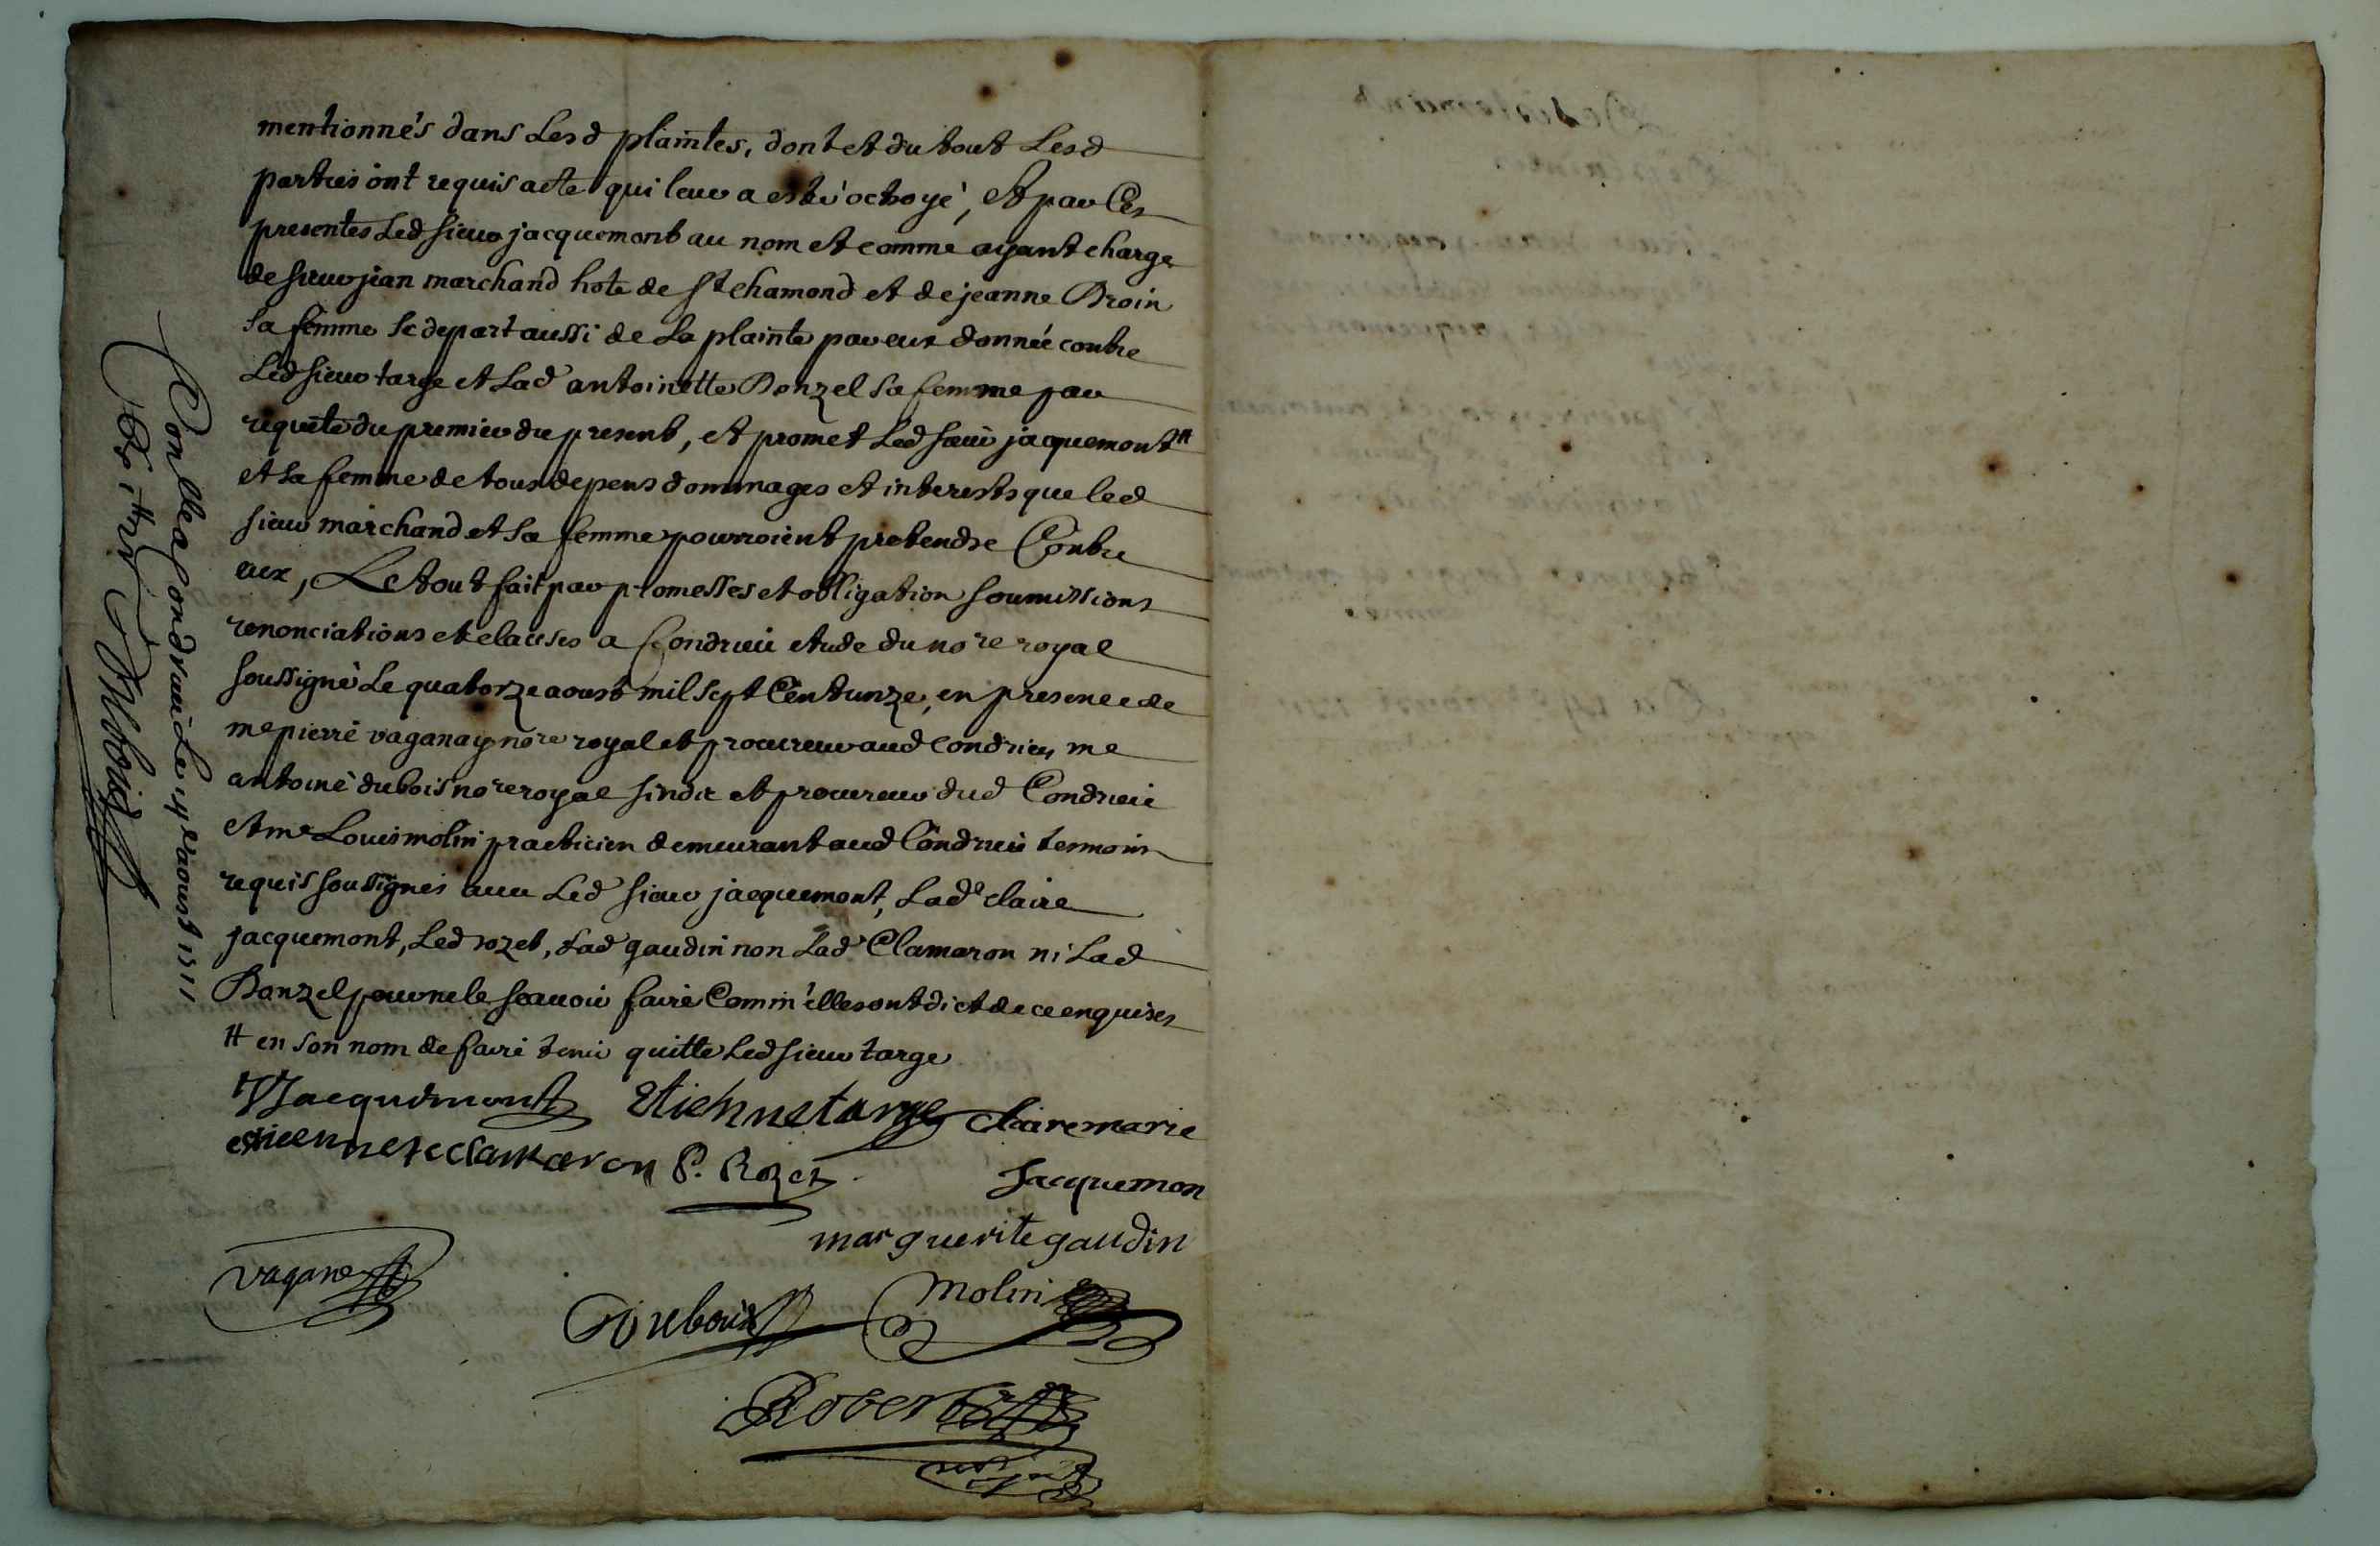 mentionnés dans Lesd plaintes, dont et du tout Lesd
parties ont requis acte qui leur a esté octroyé, Et par Ces
presentes Led sieur jacquemont au nom et comme ayant charge
de sieur jean marchand hote de st chamond et de jeanne Broin
sa femme se depart aussi de La plainte par eux donnée contre
Led sieur targe et Lad antoinette Donzel sa femme par
requete du premier du present, et promet Led sieur jacquemont #
et sa femme de tous depens dommages et interests que led
sieur marchand et sa femme pourroient pretendre Contre
eux, Le tout fait par promesses et obligation soumissions
renonciations et clauses a Condrieu etude du nore royal
soussigné Le quatorze aoust mil sept Cent unze, en presence de
me pierre vaganay nore royal et procureur aud Condrieu, me
antoine dubois nore royal sindic et procureur dud Condrieu
et me Louis molin practicien demeurant aud Condrieu temoins
requis soussignes avec Led sieur jacquemont, Lade claire
jacquemont, Led rozet, Lad gaudin non Lad Clamaron ni Lad
Donzel pour ne le scavoir faire Comm'elles ont dict de ce enquises
# en son nom de faire tenir quitte Led sieur targe
Jacquemont Etiennetarge Clairemarie
estienne clamaron P. Rozet Jacquemon
marguerite gaudin
vaganay
Dubois Molin
Robert
Con lle a Condrieu Le 14e aoust 1711